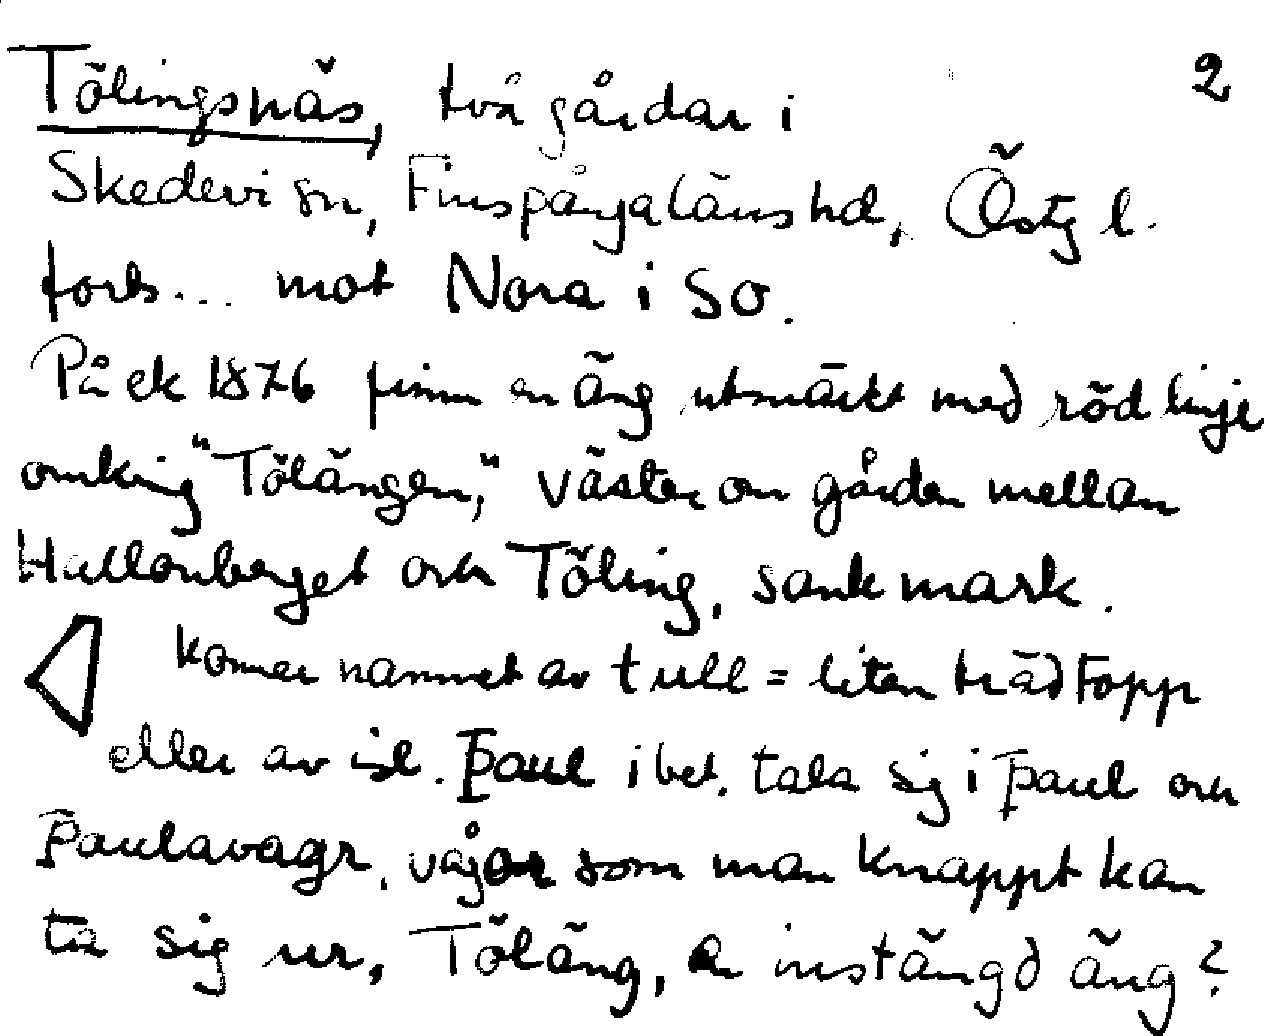 2
Tölingsnäs, två gårdar i
Skedevi sn, Finspångaläns hd, Östg l.
forts... mot Nora i SO.
På ek 1876 finns en äng utmärkt med röd linje
omkring "Tölängen," väster om gården mellan
Hallonberget och Töling, sank mark.
Kommer namnet av tull = liten trädtopp
eller av isl. þaul i bet. tala sig i þaul och
Þaulavagr, vågor som man knappt kan
ta sig ur, Töläng, en instängd äng?